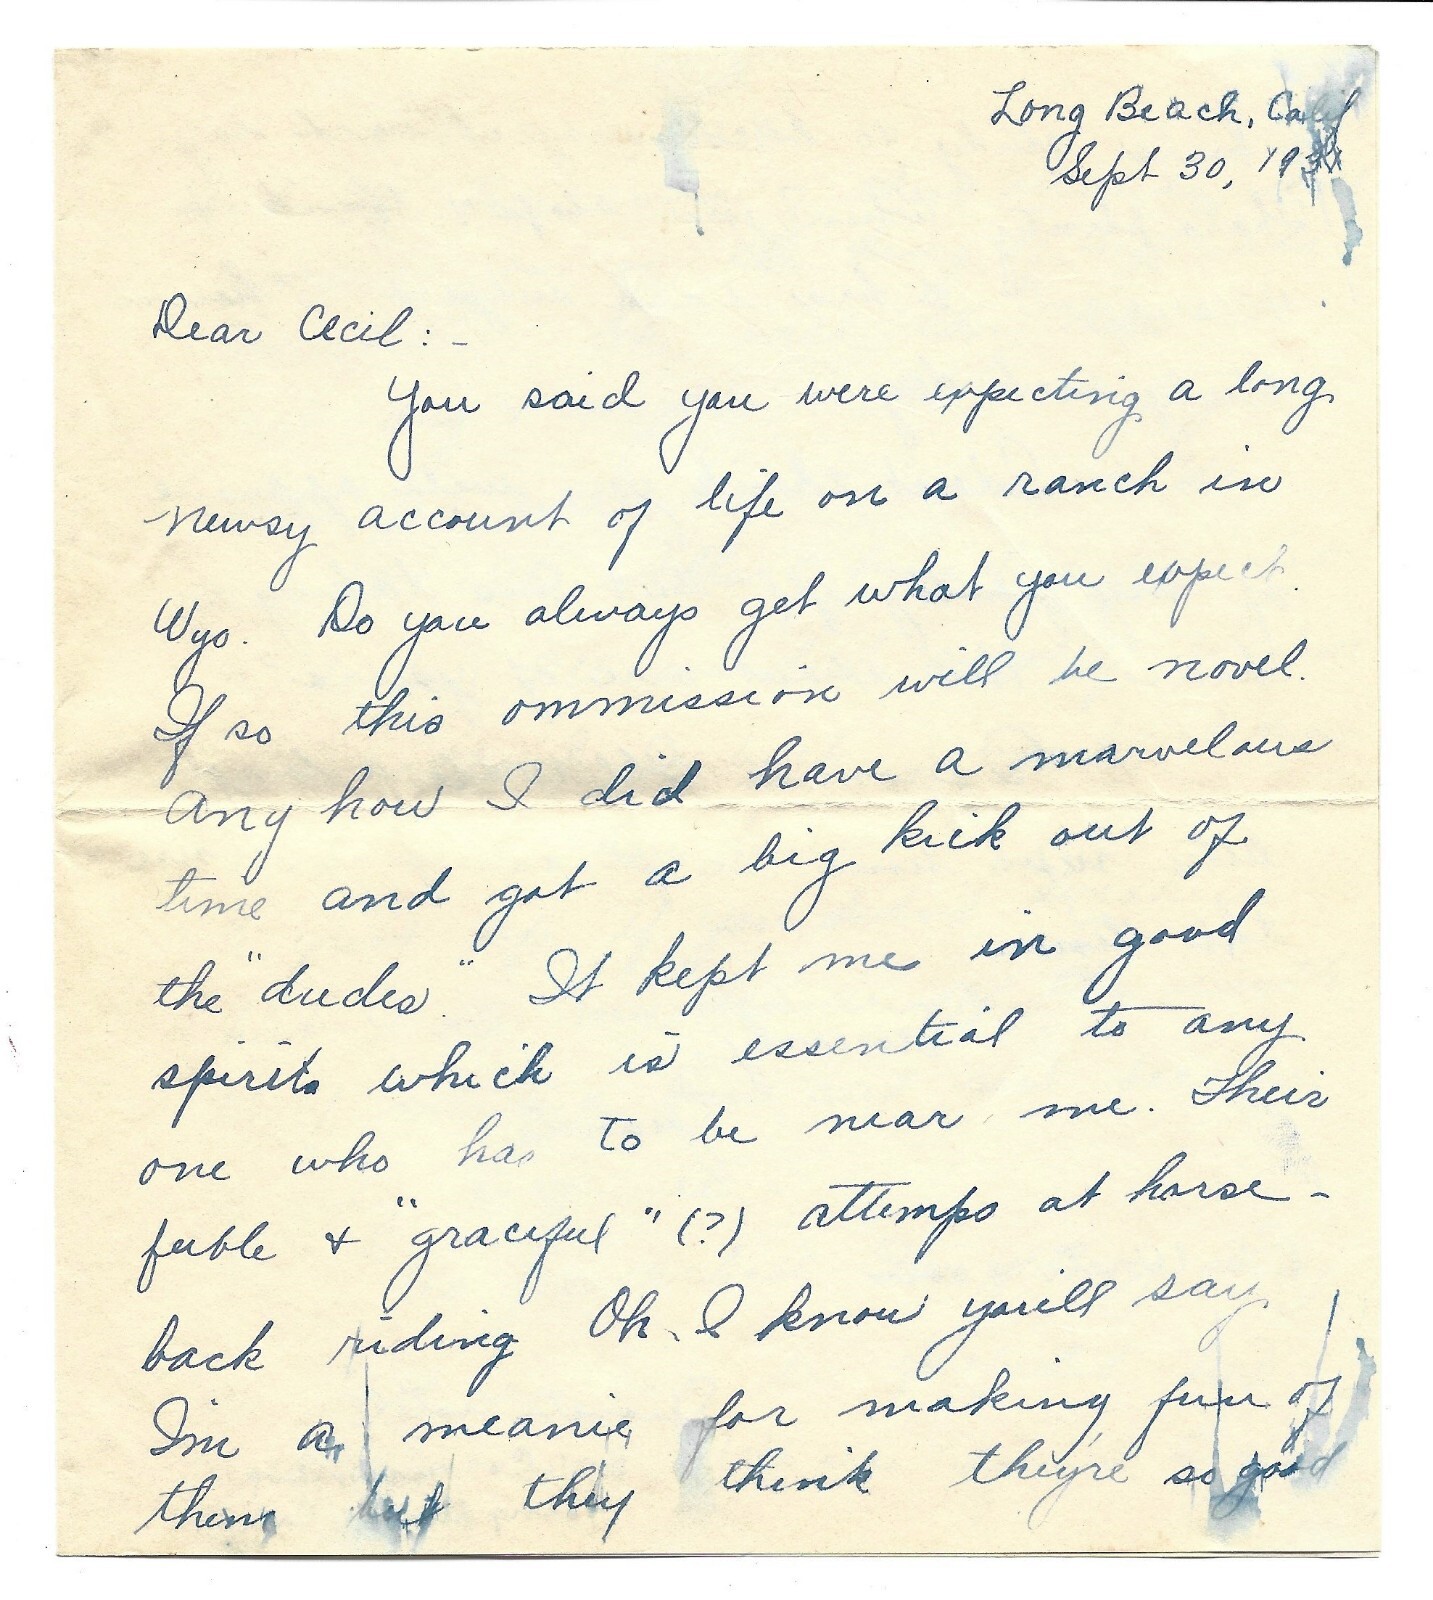 Long Beach, Calif
Sept 30, 193
Dear Cecil:-
You said you were expecting a long
newsy account of life on a ranch in
Wyo. Do you always get what you expect.
If so this ommission will be novel.
Any how I did have a marvelous
time and got a big kick out of
the "dudes". It kept me in good
spirits which is essential to any
one who has to be near me. Their
feeble & "graceful" (?) attemps at horse-
back riding Oh, I know you'll say
I'm a meanie for making fun of
them but they think they're so good